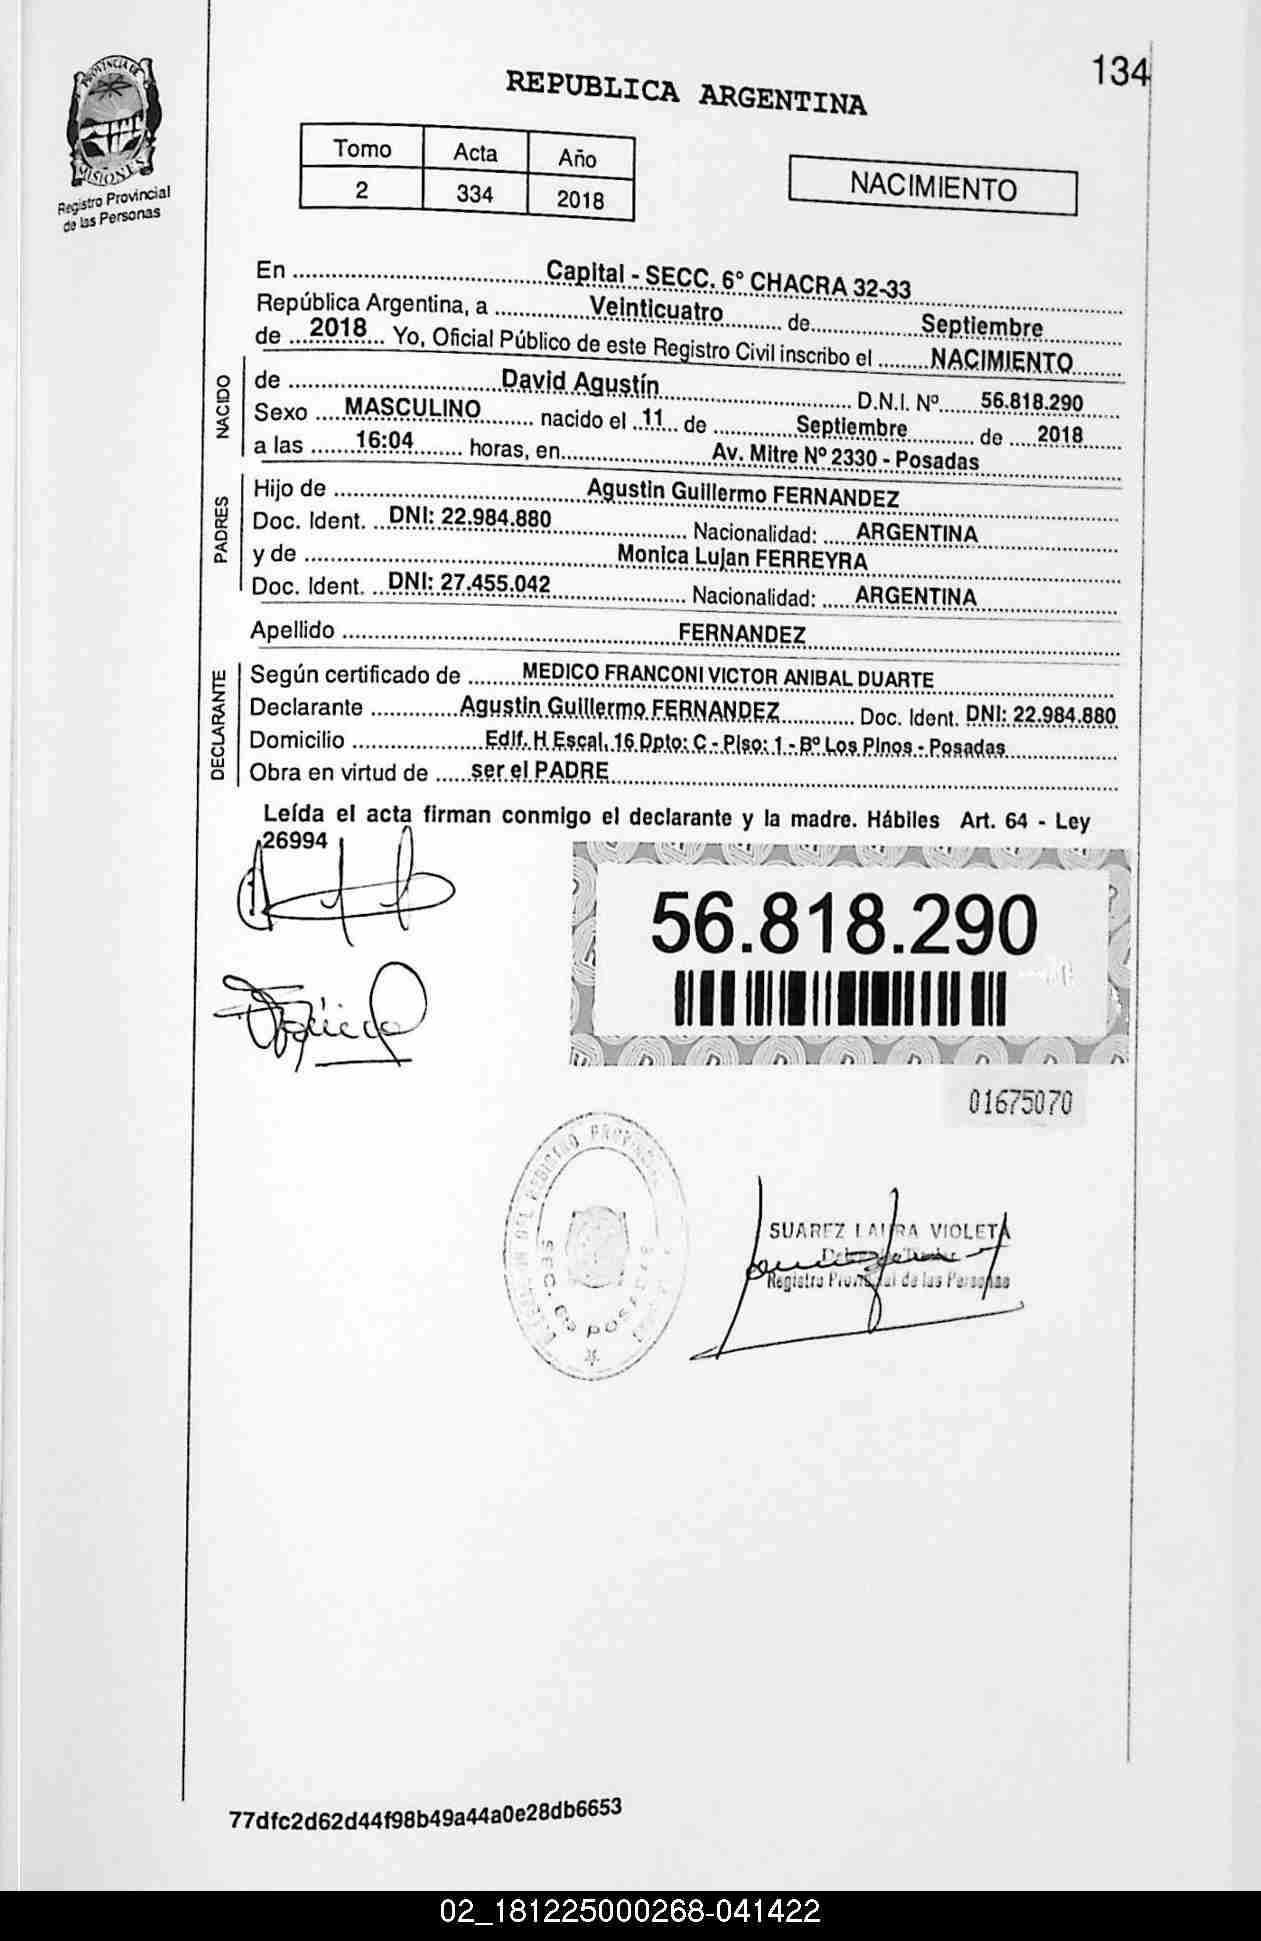 134
PROVINCIA DE
MISIONES
Registro Provincial
de las Personas
REPUBLICA ARGENTINA
Tomo Acta Año
2 334 2018
NACIMIENTO
En ........ Capital - SECC. 6º CHACRA 32-33
República Argentina, a ........ Veinticuatro ........ de ........ Septiembre
de ... 2018 ... Yo, Oficial Público de este Registro Civil inscribo el ........ NACIMIENTO
NACIDO
de ........ David Agustín ........ D.N.I. Nº ...... 56.818.290
Sexo .... MASCULINO ........ nacido el .. 11 ... de ........ Septiembre ........ de .... 2018
a las ....... 16:04 ........ horas, en ........ Av. Mitre Nº 2330 - Posadas
PADRES
Hijo de ........ Agustin Guillermo FERNANDEZ
Doc. Ident. .. DNI: 22.984.880 ........ Nacionalidad: ..... ARGENTINA
y de ........ Monica Lujan FERREYRA
Doc. Ident. .. DNI: 27.455.042 ........ Nacionalidad: ..... ARGENTINA
Apellido ........ FERNANDEZ
DECLARANTE
Según certificado de ........ MEDICO FRANCONI VICTOR ANIBAL DUARTE
Declarante ........ Agustin Guillermo FERNANDEZ ........ Doc. Ident. DNI: 22.984.880
Domicilio ........ Edif. H Escal. 16 Dpto: C - Piso: 1 - Bº Los Pinos - Posadas
Obra en virtud de ..... ser el PADRE
Leída el acta firman conmigo el declarante y la madre. Hábiles Art. 64 - Ley
26994
56.818.290
01675070
SEC. 6ª POSADAS
SUAREZ LAURA VIOLETA
Registro Provincial de las Personas
77dfc2d62d44f98b49a44a0e28db6653
02_181225000268-041422